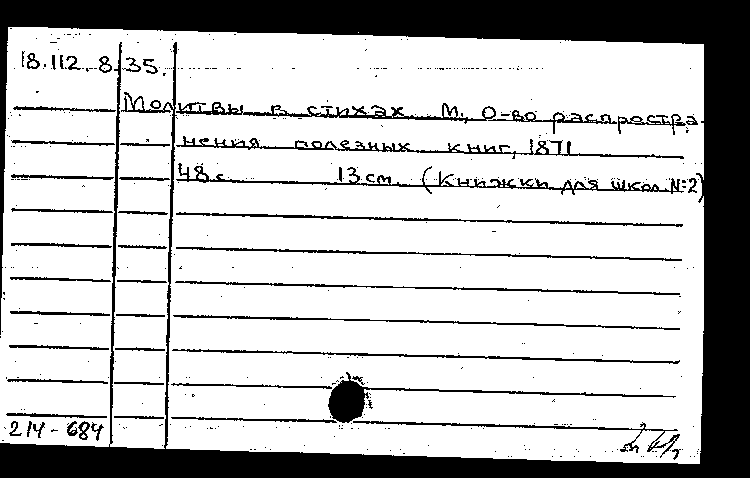 18.112.8.35.
Молитвы в стихах М., О-во распростра-
нения полезных книг, 1871
48 с. 13 см. (Книжки для школ №2)
214-684